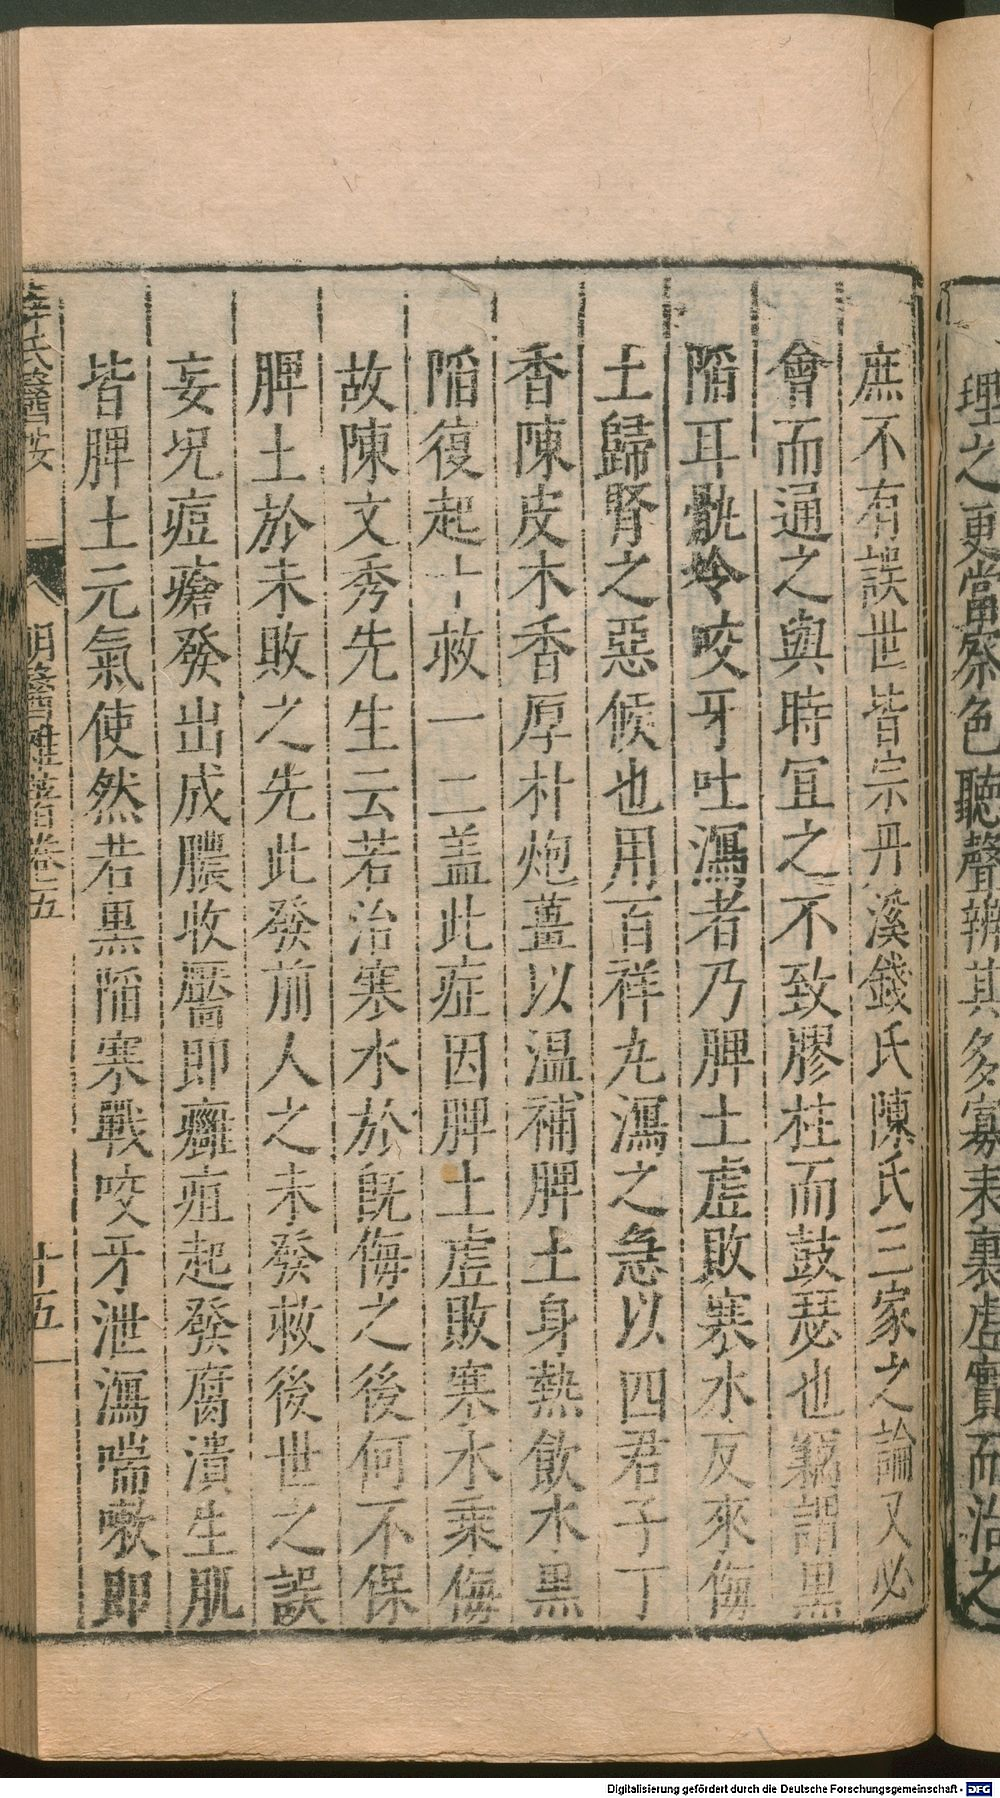 理之更當察色聽聲辨其多寡表裏虛實而治之
庶不有誤世皆宗丹溪錢氏陳氏三家之論又必
會而通之與時宜之不致膠柱而鼓瑟也竊謂黑
陷耳骩冷咬牙吐瀉者乃脾土虛敗寒水反來侮
土歸腎之惡候也用百祥丸瀉之急以四君子丁
香陳皮木香厚朴炮薑以温補脾土身熱飲水黑
陷復起十救一二盖此症因脾土虛敗寒水乘侮
故陳文秀先生云若治寒水於既侮之後何不保
脾土於未敗之先此發前人之未發救後世之誤
妄況痘瘡發出成膿收靨即癰疽起發腐潰生肌
皆脾土元氣使然若黒陷寒戰咬牙泄瀉喘嗽即
氏醫按
明醫雜著卷五
十五
Digitalisierung gefördert durch die Deutsche Forschungsgemeinschaft - DFG